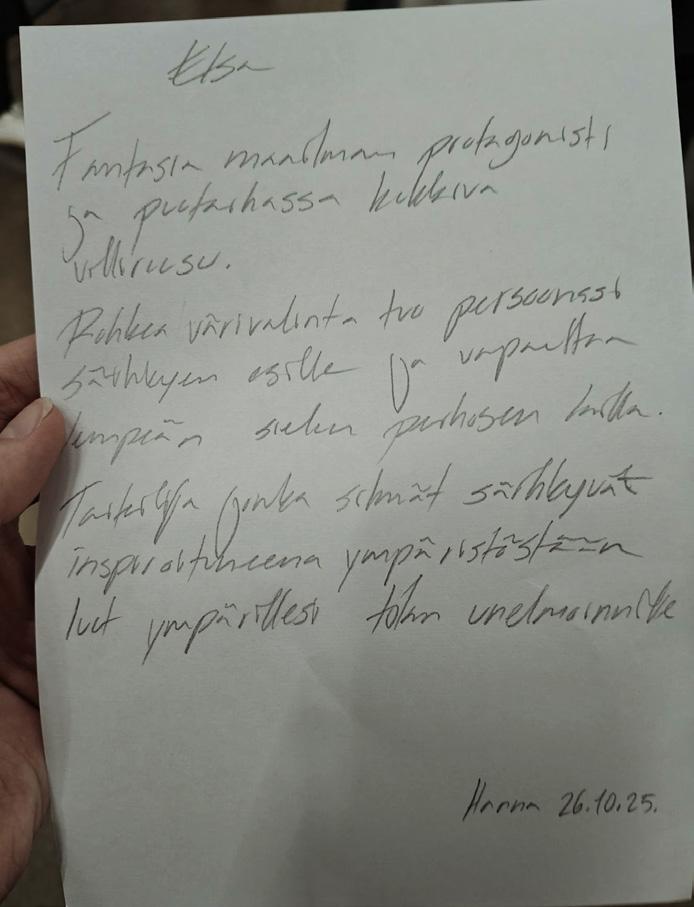 Elsa
Fantasia maailman protagonisti
ja puutarhassa kukkiva
villiruusu.
Rohkea värivalinta tuo persoonasi
särhkyen esille ja vapauttaa
lempeän sielun perhosen lailla.
Taiteilija jonka silmät särhkyvät
inspiroituneena ympäristöstään
luot ympärillesi tilan unelmoinnille
Hanna 26.10.25.